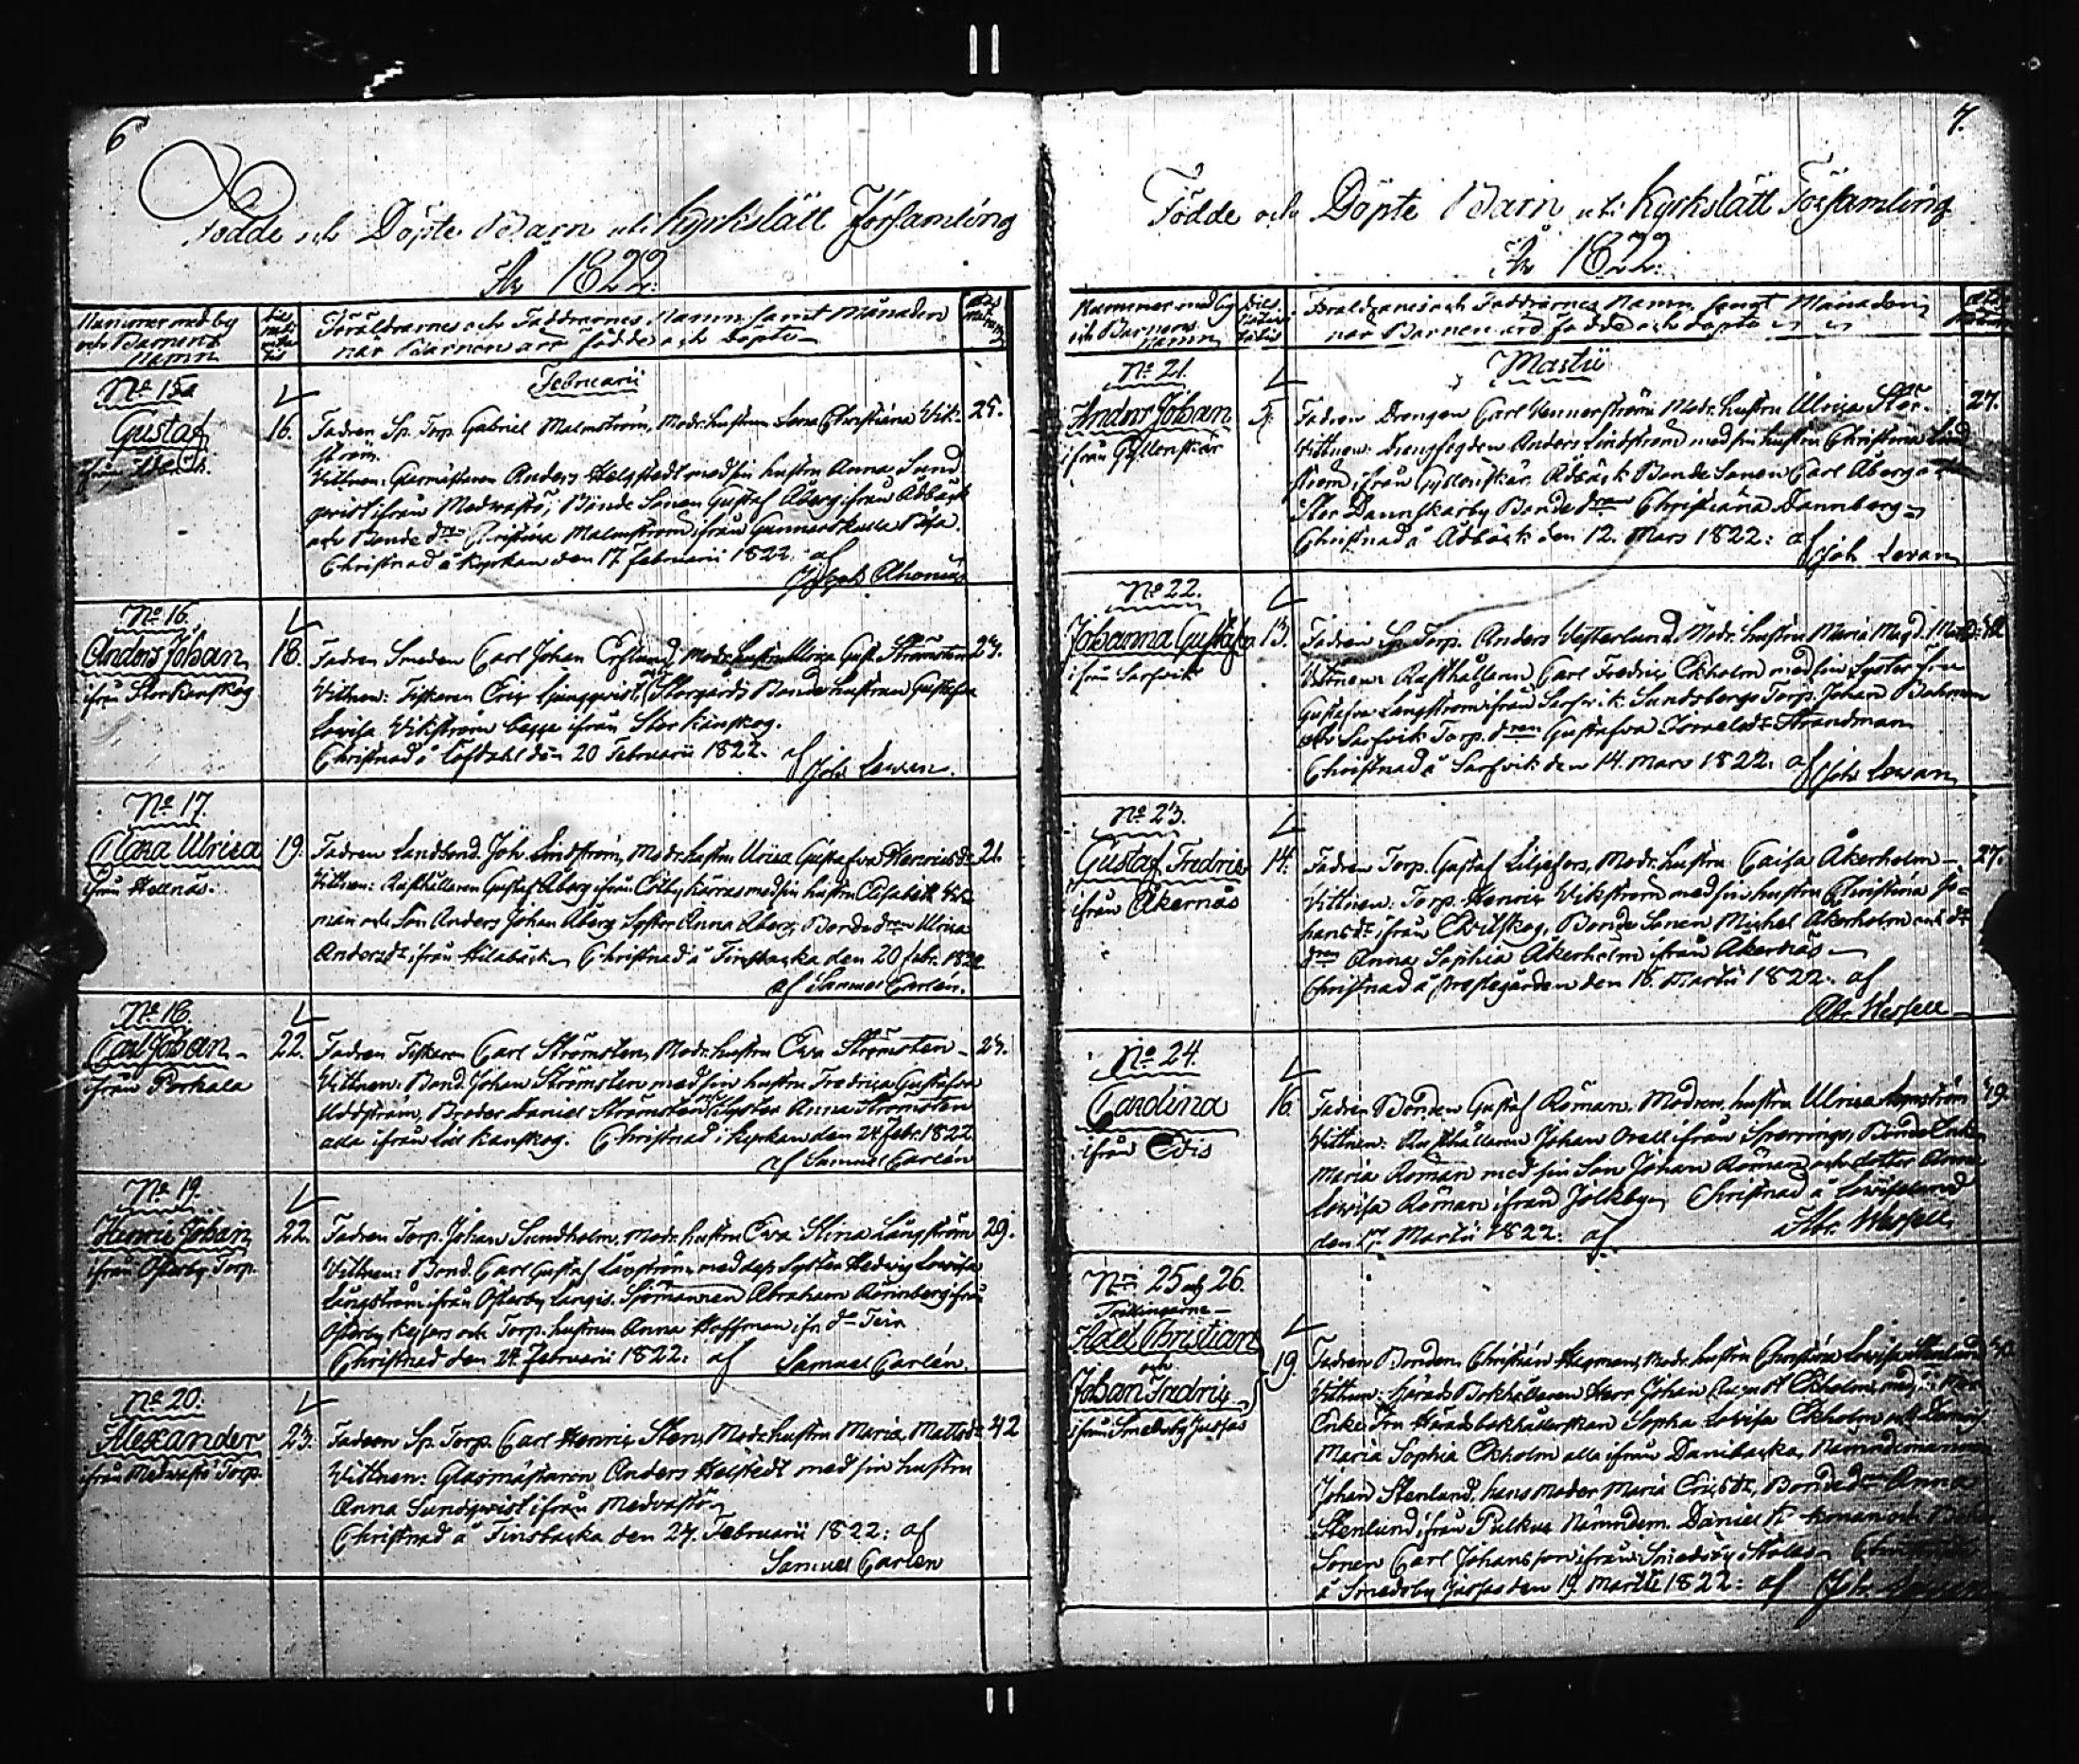 6
Födde och Döpte Barn uti Kyrkslätt Församling
År 1822.
Nummer med by
och Barnens
Namn
Föräldrarnes och Faddrarnes Namn samt Månaden
när Barnen äro födde och döpte
Februarii
No 15.
Gustaf
16.
Fadren Sp. Torp. Gabriel Malmström, Modr. hustrun Lena Christina Vik-
ström.
25.
Vittnen: Glasmästaren Anders Helgstedt med sin hustru Anna Sund
qvist ifrån Medvastö, Bonde Sonen Gustaf Åberg ifrån Ådbäck
och Bonde dren Christina Malmström ifrån Gunnarskulla
Christnad i Kyrkan den 17 Februarii 1822. af
No 16.
Anders Johan
ifrån Stor Kanskog
18.
Fadren Smeden Carl Johan Modr. hustru Ulrica Gust. Strömsten
27.
Vittnen: Fiskaren Eric Ljungqvist, Storgårds Bonde hustrun Gustafva
Lovisa Vikström begge ifrån Stor Kanskog.
Christnad å den 20 Februarii 1822. af
Joh. Levan.
No 17.
Clara Ulrica
ifrån Hellnäs.
19.
Fadren Landbond. Joh. Lindström, Modr. hustru Ulrica Gustafva Henricsdr
21.
Vittnen: Rusthållaren Gustaf Åberg ifrån med sin hustru Elisabeth
man och Son Anders Johan Åberg Syster Anna Åberg, Bonde dren Ulrica
Andersdr ifrån Hilabäck. Christnad å Finsbacka den 20 febr. 1822
af Samuel Carlén.
No 18.
Carl Johan
ifrån Porkala
22.
Fadren Fiskaren Carl Strömsten, Modr. hustru Eva Strömsten
23.
Vittnen: Bond. Johan Strömsten med sin hustru Fredrica Gustafva
Uddström, Broder Daniel Strömsten och Syster Anna Strömsten
alla ifrån Lill Kanskog. Christnad i Kyrkan den 24 febr. 1822
af Samuel Carlén
No 19.
Henric Johan
ifrån Österby Torp.
22.
Fadren Torp. Johan Sundholm, Modr. hustru Eva Stina Långström
29.
Vittnen: Bond. Carl Gustaf Lövström med dess Syster Hedvig Lovisa
Långström ifrån Österby Långis. Sjömannen Abraham Rönnberg ifrån
Österby Keisars och Torp. hustrun Anna Hoffman ifr. do Teir
Christnad den 24 Februarii 1822. af Samuel Carlén.
No 20.
Alexander
ifrån Medvastö Torp.
23.
Fadren Sp. Torp. Carl Henric Sten, Modr. hustru Maria Mattsdr
42
Vittnen: Glasmästaren Anders Helstedt med sin hustru
Anna Sundqvist ifrån Medvastö
Christnad å Finsbacka den 27. Februarii 1822: af
Samuel Carlén
7.
Födde och Döpte Barn uti Kyrkslätt Församling
År 1822.
Nummer med by
och Barnens
Namn
Föräldrarnes och Faddrarnes Namn samt Månaden
när Barnen äro födde och döpte
Martii
No 21.
Anders Johan
ifrån Gyllenskär
5.
Fadren Drengen Carl Vennerström Modr. hustru Ulrica Stör
27.
Vittnen: Drengfogden Anders Lindström med sin hustru Christina Lind
ström ifrån Gyllenskär. Ådbäck Bonde Sonen Carl Åberg
Stor Dannskarby Bonde dren Christiana Dannberg
Christnad å Ådbäck den 12. Mars 1822: af
Joh Levan
No 22.
Johanna Gustafva
ifrån Sarfvik
13.
Fadren Sp. Torp. Anders Vesterlund, Modr. hustru Maria Magd.
Vittnen: Rusthållaren Carl Fredric Ekholm med sin Syster
Gustafva Långström ifrån Sarfvik. Sundsbergs Torp. Johan
och Sarfvik Torp. dren Gustafva Israelsdr Strandman
Christnad å Sarfvik den 14. Mars 1822: af Joh. Levan
No 23.
Gustaf Fredric
ifrån Åkernäs
14.
Fadren Torp. Gustaf Liljefors, Modr. hustru Caisa Åkerholm
27.
Vittnen: Torp. Henric Vikström med sin hustru Christina Jo-
hansdr ifrån Evitskog, Bonde Sonen Michel Åkerholm och
dren Anna Sophia Åkerholm ifrån Åkernäs
Christnad å Prestegården den 16. Martii 1822. af
Abr. Wessell
No 24.
Carolina
ifrån Edis
16.
Fadren Bonden Gustaf Roman, Modren hustru Ulrica
29.
Vittnen: Rusthållaren Johan Orell ifrån Sperrings, Bonde Enkan
Maria Roman med sin Son Johan Roman och dotter Anna
Lovisa Roman ifrån Jolkby Christnad å Lovislund
den 17. Martii 1822: af Abr. Wessell
No 25 och 26.
Tvillingarne
Axel Christian
och
Johan Fredric
ifrån Smedsby Jusfas
19.
Fadren Bonden Christian Hagman, Modr. hustru Christina Lovisa Stenlund
30.
Vittnen: Härads Bokhållaren Herr Johan August Ekholm, med
Enke Fru Häradsbokhållerskan Sophia Lovisa Ekholm och
Maria Sophia Ekholm alla ifrån Danibacka, Nämndemannen
Johan Stenlund, hans moder Maria Ericsdr, Bonde dren Anna
Stenlund ifrån Pulkus Nämndem. Daniel och
Sonen Carl Johansson ifrån Smedsby
å Smedsby Jusfas den 19. Martii 1822: af Joh.